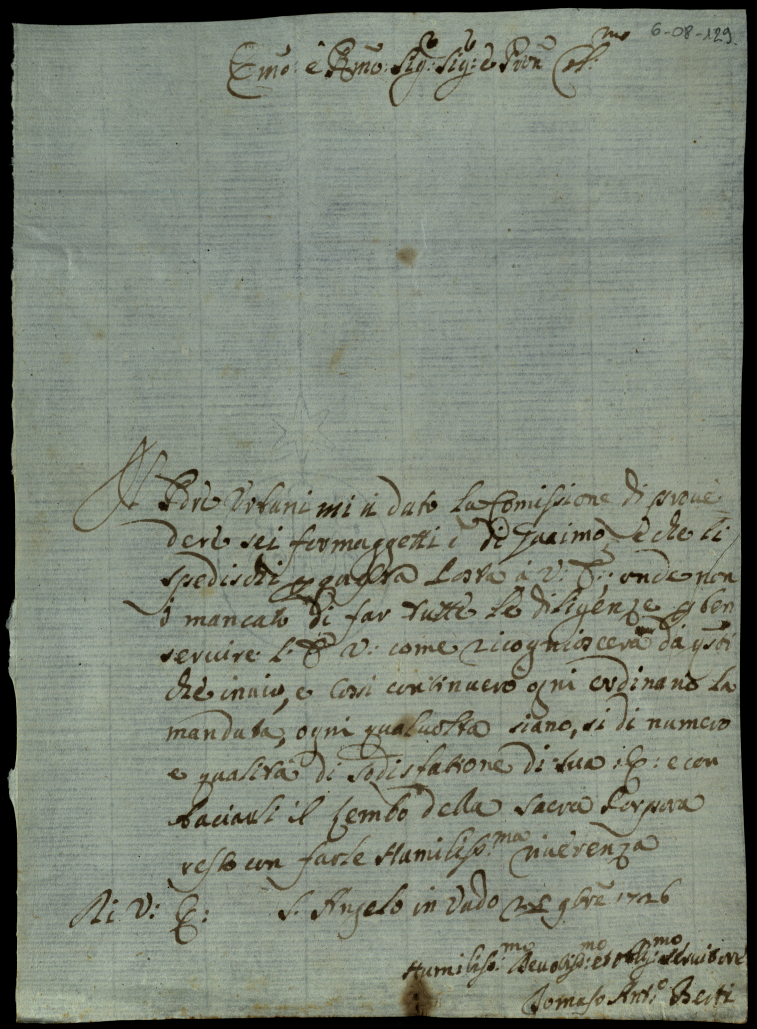 6-08-129
Emo: è Rmo: Sig:re Sig:re è Pron Col:mo
Il Pdre Urbani mi à dato la Comissione di prove
dere sei formaggetti è di Guaimo, è che li
spedischi p questa Posta à V: E: onde non
ò mancato di far tutte le diligenze p ben
servire l: E: V: come ricognioscerà da qsti
che invio, e Cossì continuerò ogni ordinario la
mandata, ogni qualvolta siano, si di numero
e qualità di sodisfatione di sua E: e con
baciarli il lembo della sacra Porpora
resto con farle Humiliss:ma riverenza
Di V: E: S. Angelo in Vado gbre 1726
Humiliss:mo Devotiss:mo et obblig:mo Servitore
Tomaso Ant:o Berti